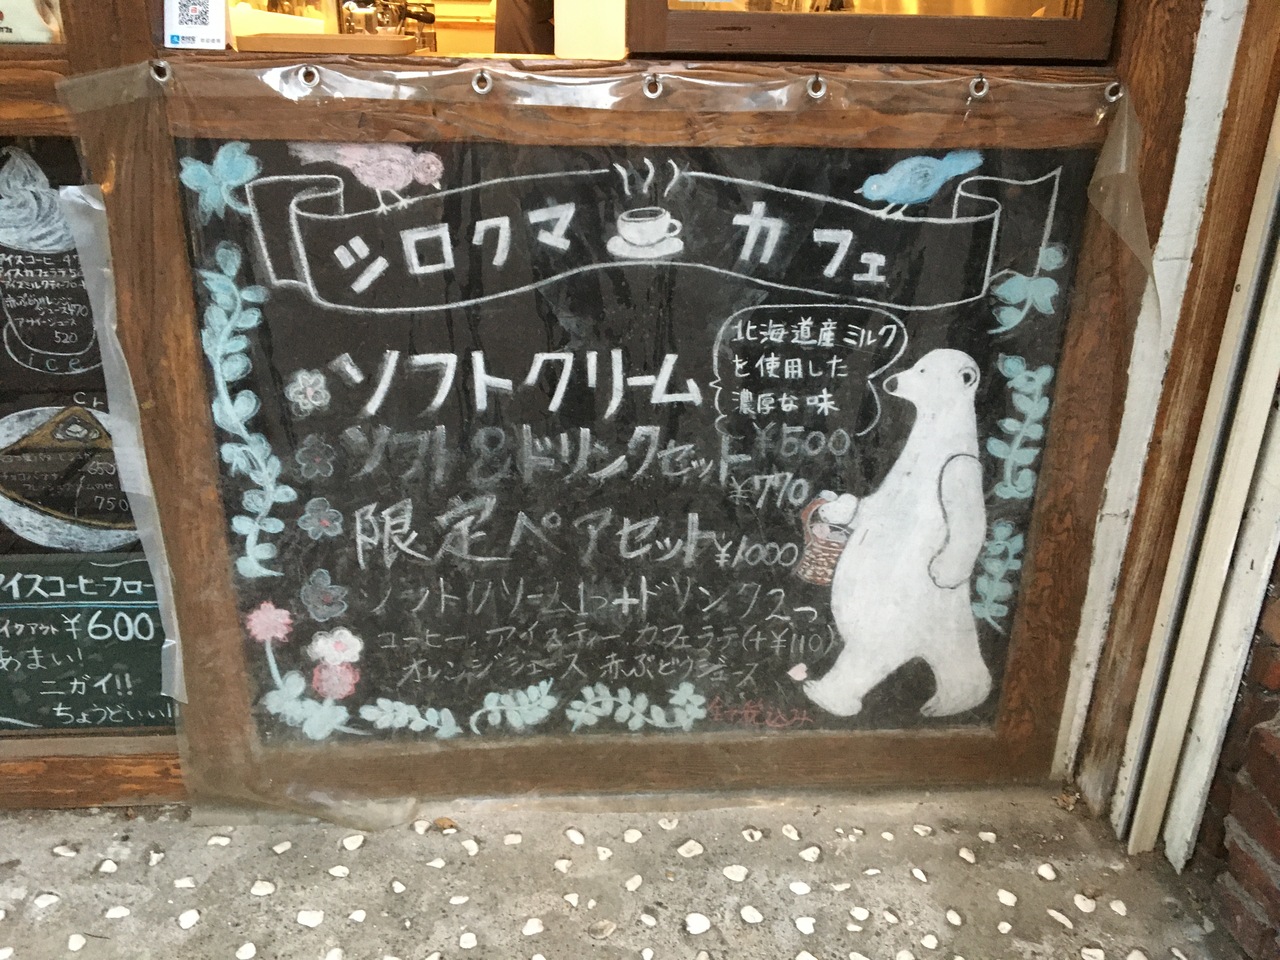 シロクマ カフェ
ソフトクリーム
北海道産ミルク
を使用した
濃厚な味
¥500
ソフト&ドリンクセット
¥770
限定ペアセット ¥1000
ソフトクリーム1つ+ドリンク2つ
コーヒー、アイスティー、カフェラテ(+¥110)
オレンジジュース 赤ぶどうジュース
全て税込み
アイスコーヒー 47
アイスカフェラテ 5
アイスミルクティーフロー
赤ぶどう オレンジ
ジュース 470
アサイージュース
520
ice
Cr
650
750
アイスコーヒーフロー
イクアウト ¥600
あまい!
ニガイ!!
ちょうどいい!